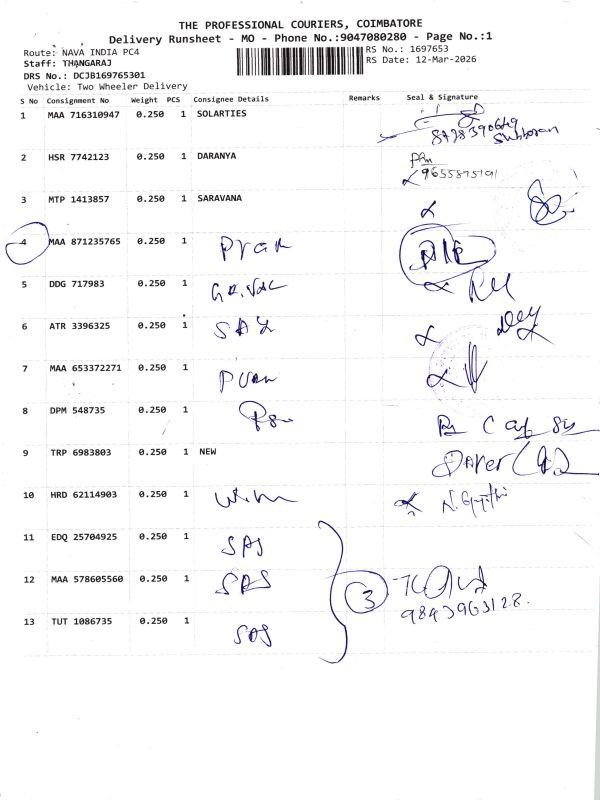 THE PROFESSIONAL COURIERS, COIMBATORE
Delivery Runsheet - MO - Phone No.:9047080280 - Page No.:1
Route: NAVA INDIA PC4
RS No.: 1697653
Staff: THANGARAJ
RS Date: 12-Mar-2026
DRS No.: DCJB169765301
Vehicle: Two Wheeler Delivery
S No Consignment No Weight PCS Consignee Details Remarks Seal & Signature
1 MAA 716310947 0.250 1 SOLARTIES
2 HSR 7742123 0.250 1 DARANYA
3 MTP 1413857 0.250 1 SARAVANA
4 MAA 871235765 0.250 1
5 DDG 717983 0.250 1
6 ATR 3396325 0.250 1
7 MAA 653372271 0.250 1
8 DPM 548735 0.250 1
9 TRP 6983803 0.250 1 NEW
10 HRD 62114903 0.250 1
11 EDQ 25704925 0.250 1 SAS
12 MAA 578605560 0.250 1 SAS 3
9843963128.
13 TUT 1086735 0.250 1 SAS